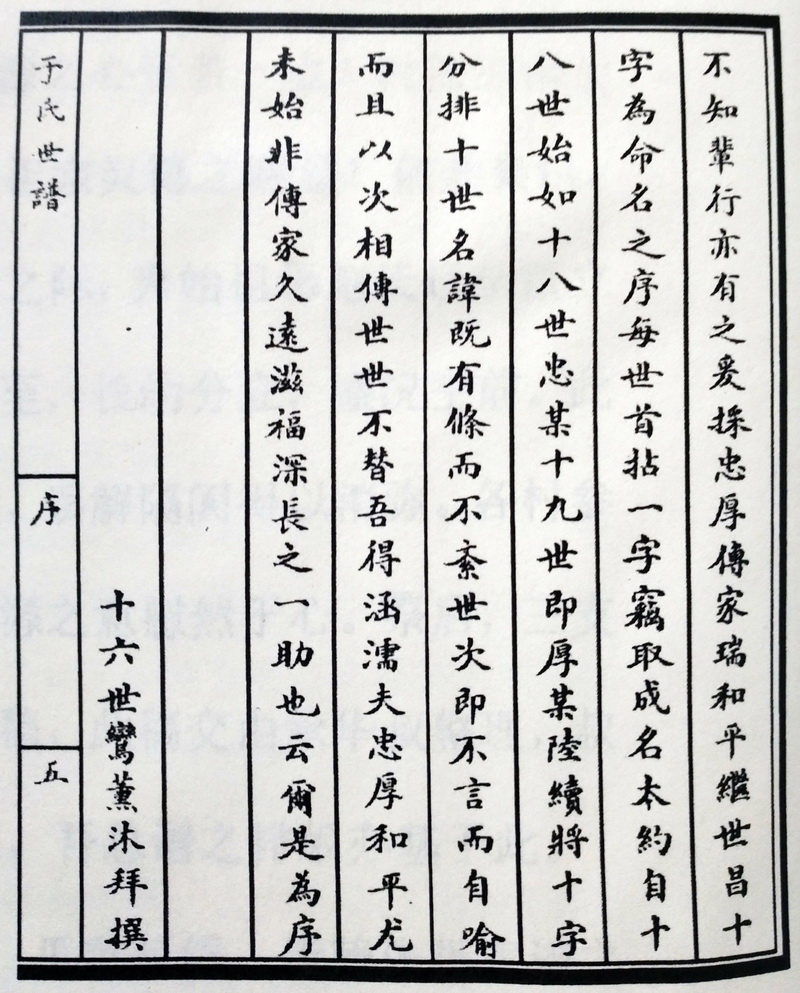 不知輩行亦有之爰採忠厚傳家瑞和平繼世昌十
字為命名之序每世首拈一字竊取成名大約自十
八世始如十八世忠某十九世即厚某陸續將十字
分排十世名諱既有條而不紊世次即不言而自喻
而且以次相傳世世不替吾得涵濡夫忠厚和平尤
未始非傳家久遠滋福深長之一助也云爾是為序
十六世鸞薰沐拜撰
于氏世譜
序
五